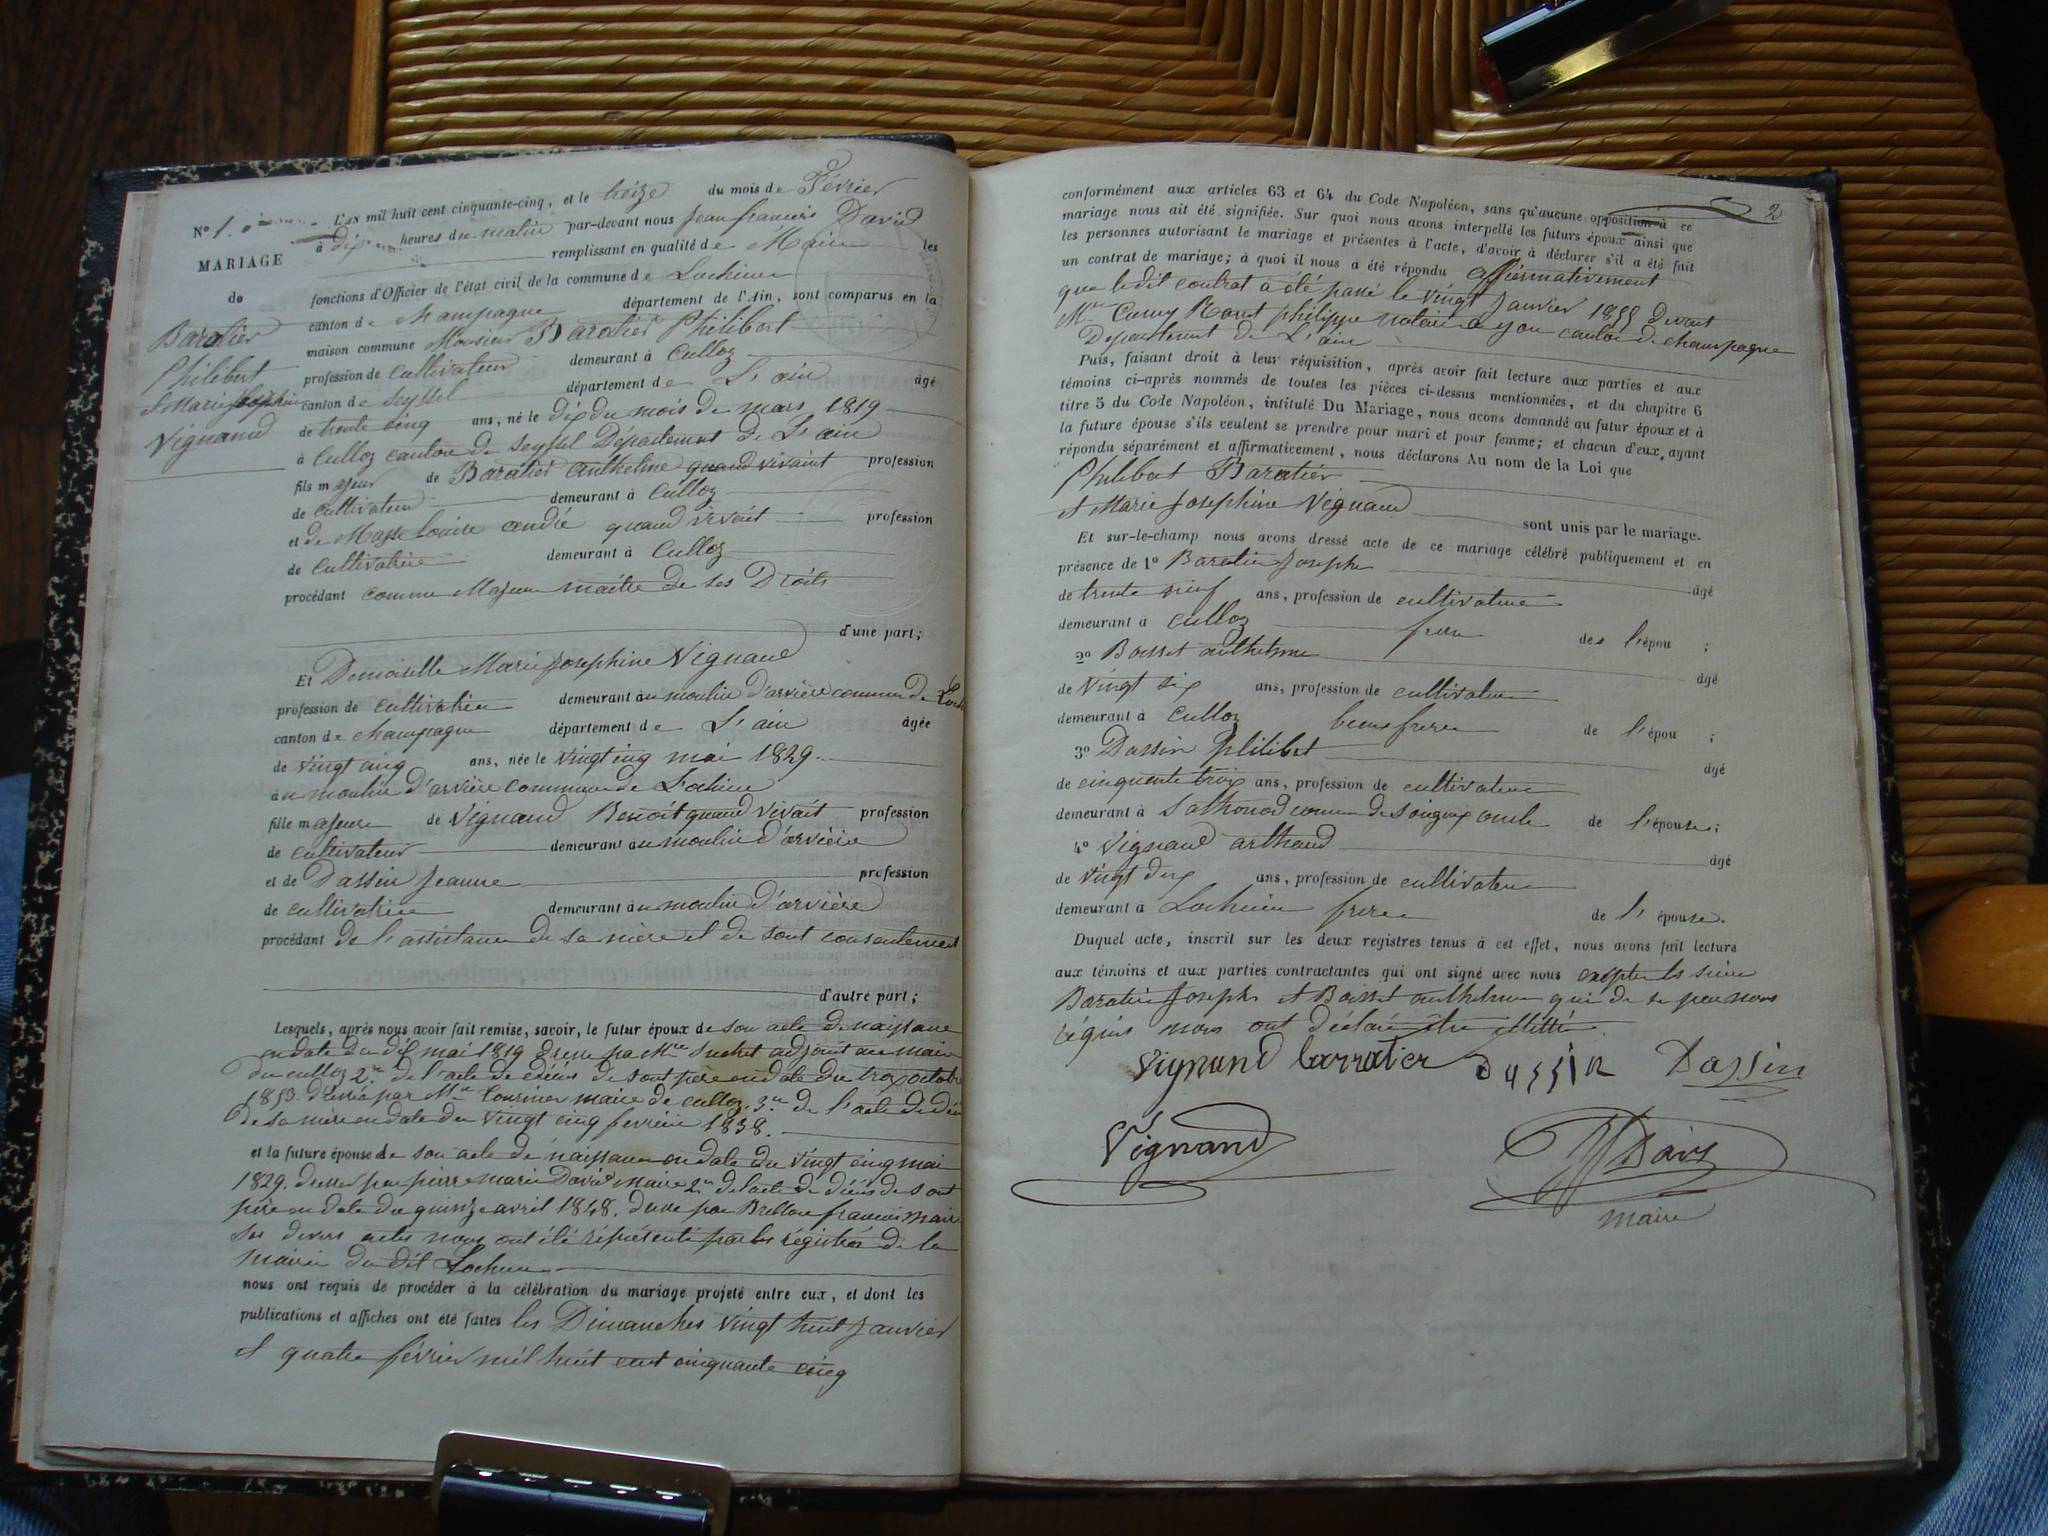 N° 1.
MARIAGE
de
Baratier
Philibert
& Marie Josephine
Vignand
L'AN mil huit cent cinquante-cinq, et le treize du mois de Février
à dix heures du matin par-devant nous Jean francois David
remplissant en qualité de Maire les
fonctions d'Officier de l'état civil de la commune de Lochieu
canton de Champagne département de l'Ain, sont comparus en la
maison commune Monsieur Baratier Philibert
profession de cultivateur demeurant à Culloz
canton de Seyssel département de L'ain âgé
de trente cinq ans, né le dix du mois de mars 1819
à Culloz canton de Seyssel Département de L'ain
fils majeur de Baratier Anthelme quand vivait profession
de cultivateur demeurant à Culloz
et de Masse Louise quand vivait profession
de cultivatrice demeurant à Culloz
procédant comme Majeur maître de ses Droits
d'une part;
Et Demoiselle Marie Josephine Vignand
profession de cultivatrice demeurant au moulin d'arvière commune de
canton de champagne département de L'ain âgée
de vingt cinq ans, née le vingt cinq mai 1829
au moulin d'arvière commune de Lochieu
fille majeure de Vignand Benoit quand vivait profession
de cultivateur demeurant au moulin d'arvière
et de Dassin Jeanne profession
de cultivatrice demeurant au moulin d'arvière
procédant de l'assistance de sa mère et de sont consentement
d'autre part;
Lesquels, après nous avoir fait remise, savoir, le futur époux de son acte de naissance
en date du dix mai 1819 dressé par Mre Suchet adjoint au maire
du culloz 2.nt de l'acte de décès de sont père en date du trois octobre
1853. dressé par Mre Cournier maire de culloz. 3.nt de l'acte de décè
de sa mère en date du vingt cinq fevrier 1838.
et la future épouse de son acte de naissance en date du vingt cinq mai
1829. dressé par pierre marie David Maire 2.nt de l'acte de décès de sont
père en date du quinze avril 1848. dressé par francois maire
Ses divers actes nous ont été réprésenté par les régistres de la
mairie du dit Lochieu
nous ont requis de procéder à la célébration du mariage projeté entre eux, et dont les
publications et affiches ont été faites les Dimanches vingt huit Janvier
et quatre février mil huit cent cinquante cinq
2
conformément aux articles 63 et 64 du Code Napoléon, sans qu'aucune opposition à ce
mariage nous ait été signifiée. Sur quoi nous avons interpellé les futurs époux ainsi que
les personnes autorisant le mariage et présentes à l'acte, d'avoir à déclarer s'il a été fait
un contrat de mariage; à quoi il nous a été répondu affirmativement
que le dit contrat a été passé le vingt Janvier 1855 devant
Mre philippe notaire a yon canton de champagne
Departement de L'ain
Puis, faisant droit à leur réquisition, après avoir fait lecture aux parties et aux
témoins ci-après nommés de toutes les pièces ci-dessus mentionnées, et du chapitre 6
titre 5 du Code Napoléon, intitulé Du Mariage, nous avons demandé au futur époux et à
la future épouse s'ils veulent se prendre pour mari et pour femme; et chacun d'eux, ayant
répondu séparément et affirmativement, nous déclarons Au nom de la Loi que
Philibert Baratier
et Marie Josephine Vignand
sont unis par le mariage.
Et sur-le-champ nous avons dressé acte de ce mariage célébré publiquement et en
présence de 1° Baratier Joseph âgé
de trente neuf ans, profession de cultivateur
demeurant à Culloz frere des l'épou ;
2° Bosset anthelme âgé
de vingt six ans, profession de cultivateur
demeurant à Culloz beau frere de l'épou ;
3° Dassin Philibert âgé
de cinquante trois ans, profession de cultivateur
demeurant à Sathonod commune de Songieux oncle de l'épouse;
4° Vignand arthaud âgé
de vingt deux ans, profession de cultivateur
demeurant à Lochieu frere de l'épouse.
Duquel acte, inscrit sur les deux registres tenus à cet effet, nous avons fait lecture
aux témoins et aux parties contractantes qui ont signé avec nous excepter les sieur
Baratier Joseph et Bosset anthelme qui de se par nous
réquis nous ont déclaré être illettré.
Vignand barratier dassin Dassin
Vignand
David
maire